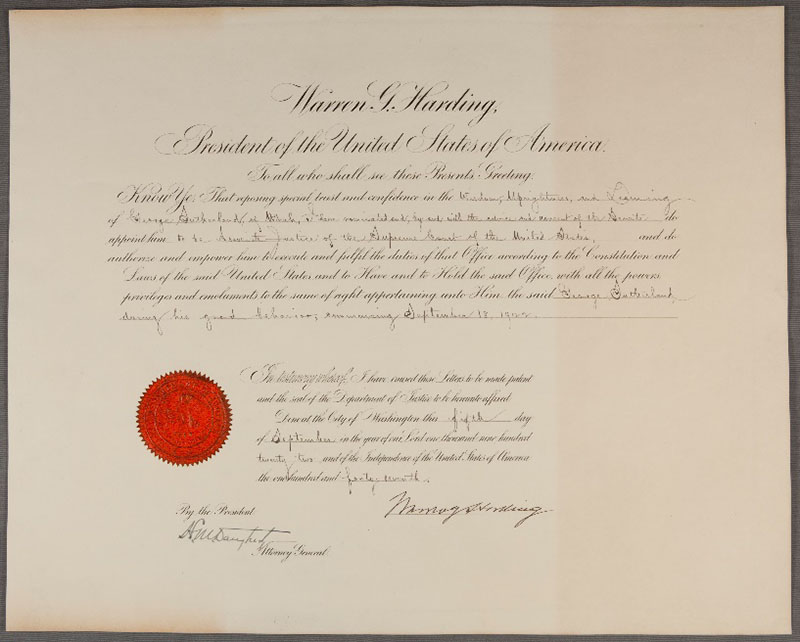 Warren G. Harding,
President of the United States of America.
To all who shall see these Presents, Greeting:
Know Ye; That reposing special trust and confidence in the Wisdom, Uprightness, and Learning
of George Sutherland, of Utah, I have nominated and, by and with the advice and consent of the Senate do
appoint him to be Associate Justice of the Supreme Court of the United States, and do
authorize and empower him to execute and fulfil the duties of that Office according to the Constitution and
Laws of the said United States and to Have and to Hold the said Office, with all the powers
privileges and emoluments to the same of right appertaining unto Him the said George Sutherland,
during his good behavior, commencing September 18, 1922.
In testimony whereof, I have caused these Letters to be made patent
and the seal of the Department of Justice to be hereunto affixed.
Done at the City of Washington this fifth day
of September in the year of our Lord one thousand nine hundred
twenty two and of the Independence of the United States of America
the one hundred and forty-seventh.
By the President:
Warren G Harding
H M Daugherty
Attorney General.